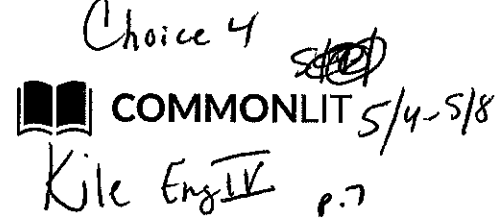 Choice 4
COMMONLIT 5/4-5/8
Kile Eng IV p.7